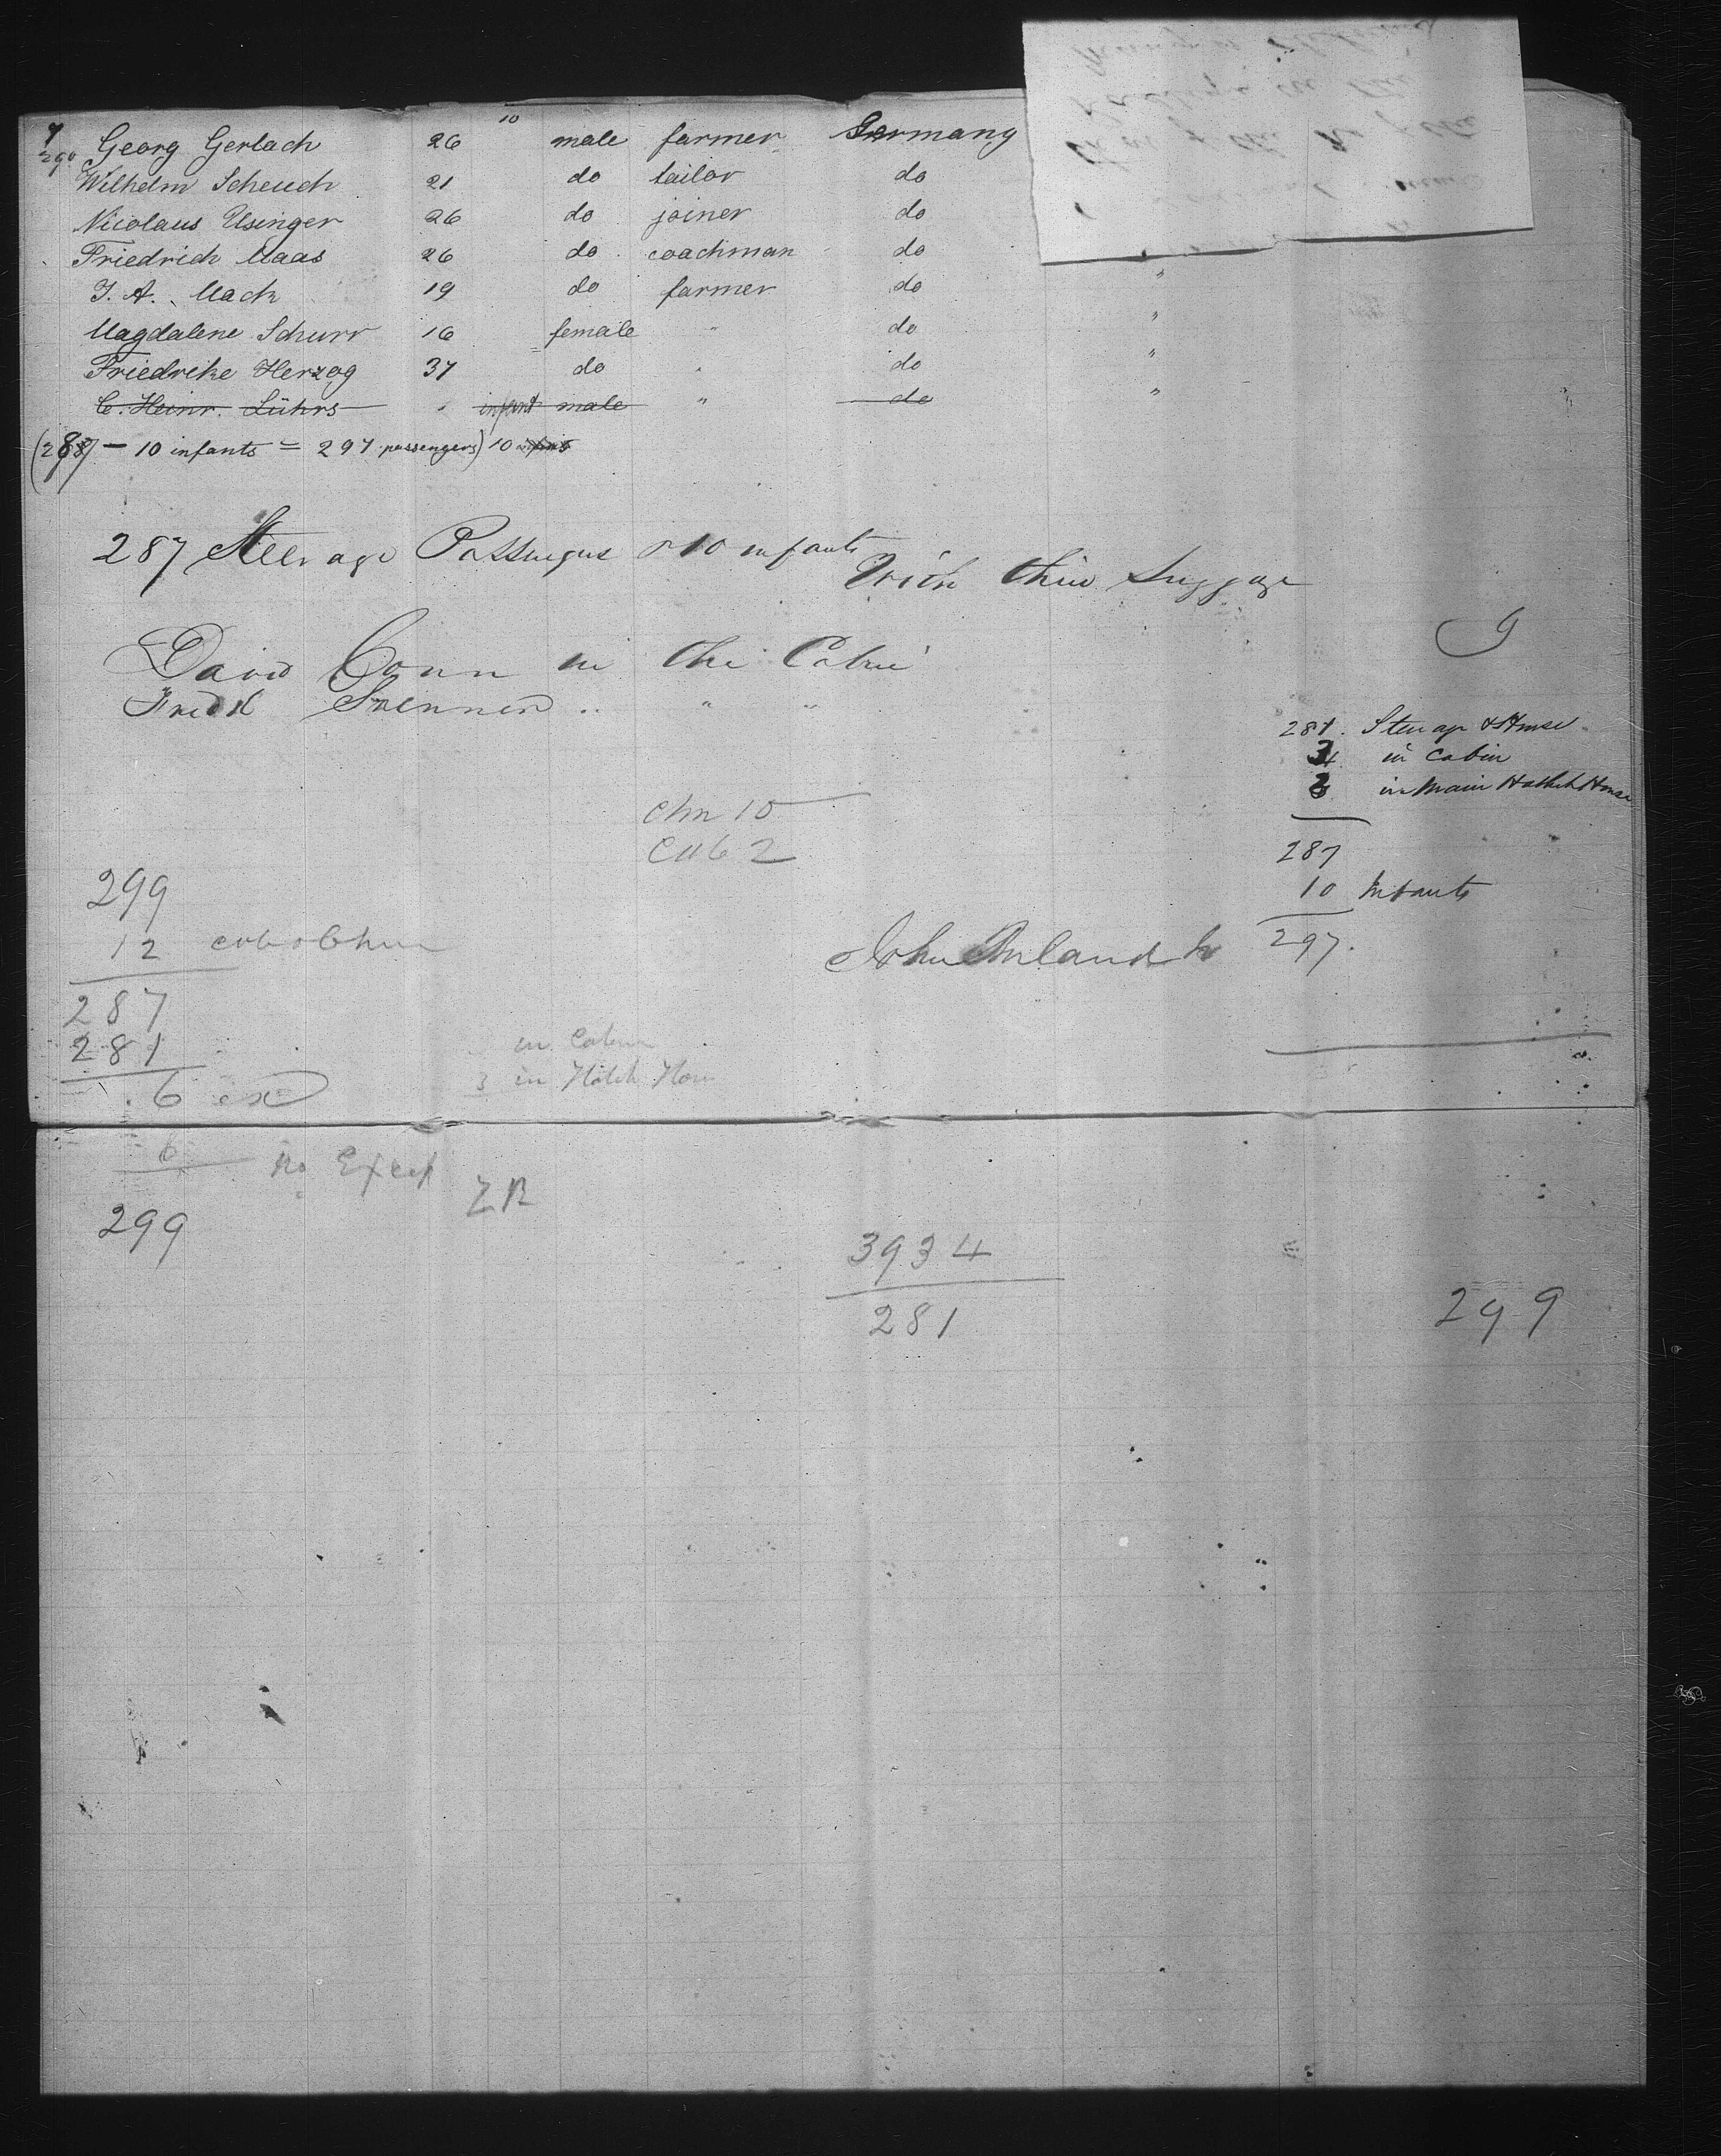 10
Georg Gerlach 26 male farmer Germany
290 Wilhelm Scheuch 21 do tailor do
Nicolaus Usinger 26 do joiner do
Friedrich Maas 26 do coachman do
J. A. Mack 19 do farmer do "
Magdalene Schurr 16 female " do "
Friedrike Herzog 37 do " do "
C. Heinr. Lührs infant male " do "
(287 — 10 infants = 297 passengers) 10 infants
287 Steerage Passengers & 10 infants
With their Luggage
David Conn in the Cabin
Fredk " "
281 Steerage & House
3 in Cabin
3 in Main Hatch House
287
10 Infants
297.
Chn 10
Cab 2
299
12 cab & Chn
287
281
6 ex
John
in Cabin
3 in Hatch House
6 no Excess
ZR
299
3934
281
299